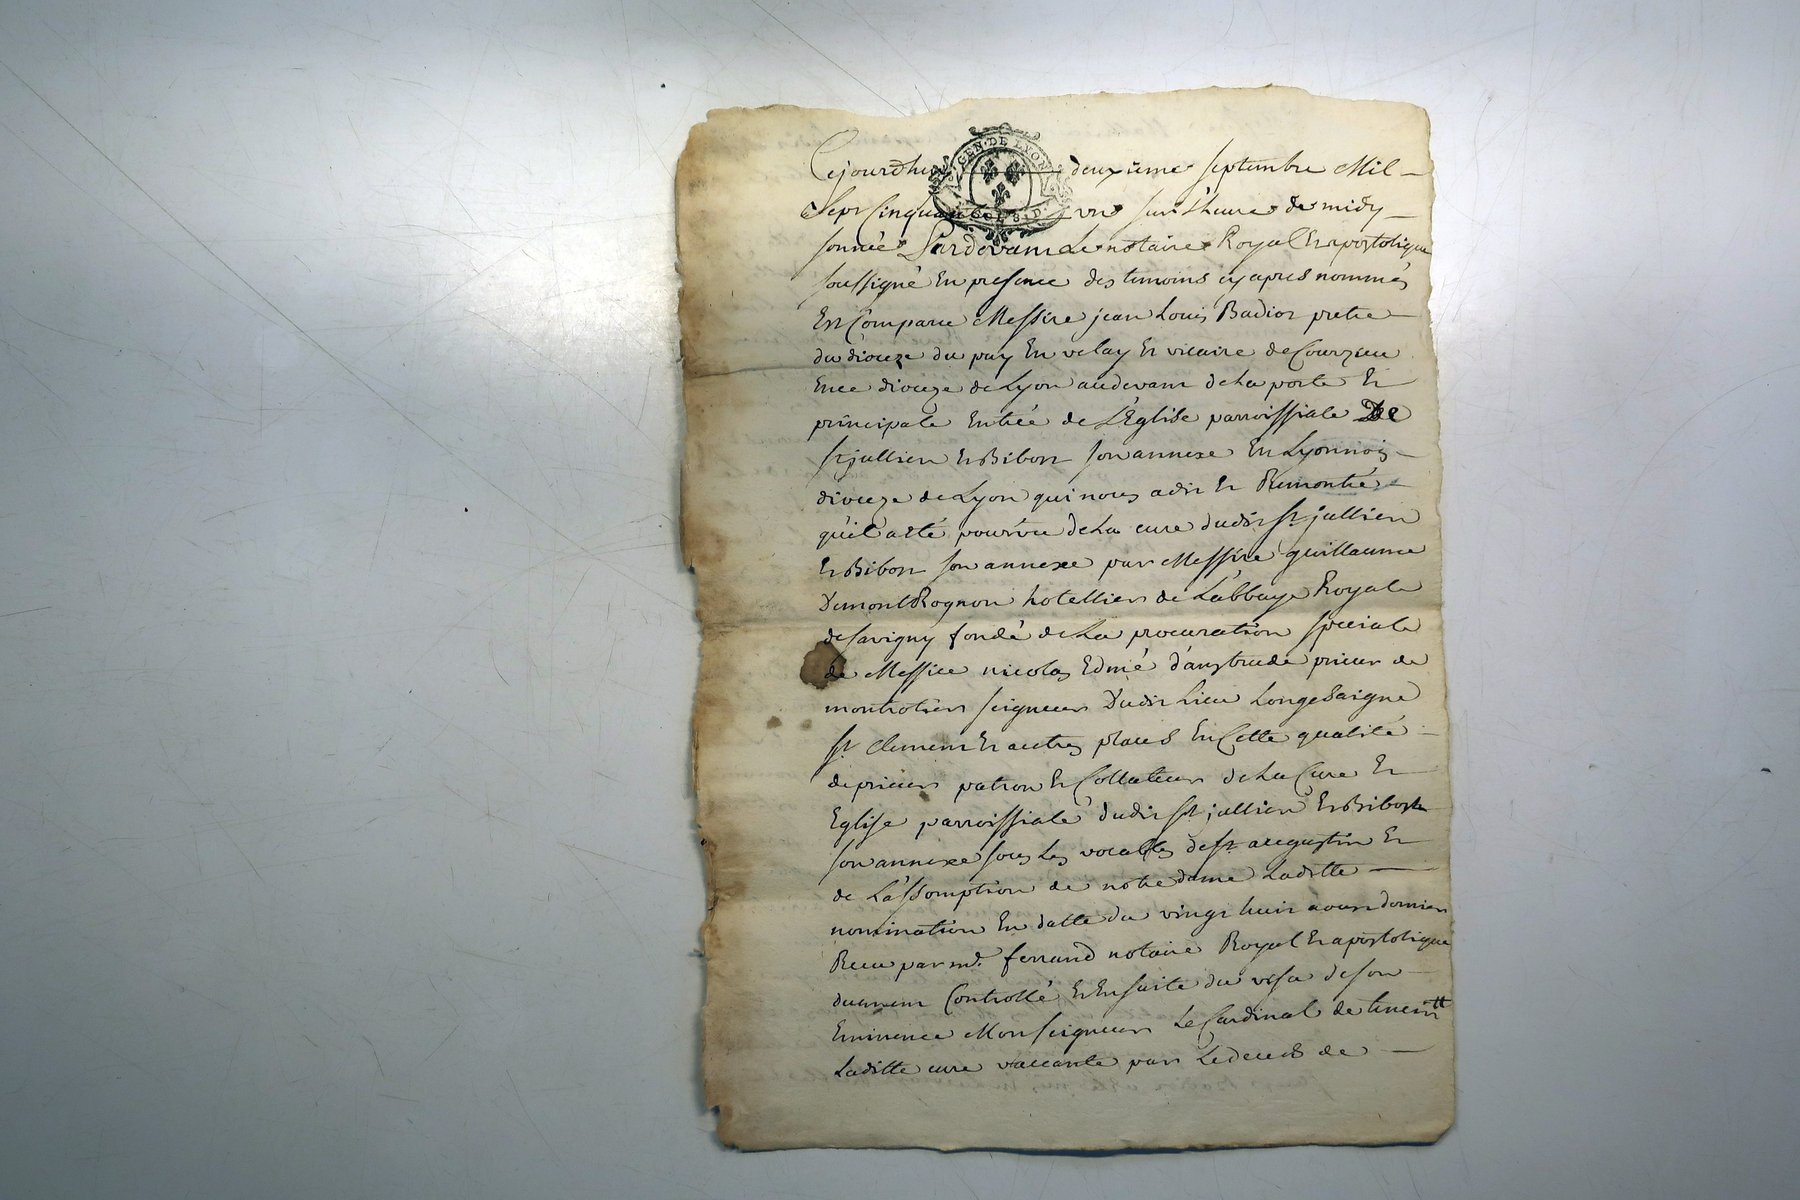 GEN·DE LYON
Cejourdhuy deuxieme septembre Mil
Sept Cinquante un sur L'heure de midy
sonnée Pardevant Le notaire Royal Et apostolique
soussigné En presence des temoins cy apres nommés
Est Comparu Messire jean Louis Badior pretre
du dioceze du puy En velay Et vicaire de Courzieu
En ce dioceze de Lyon au devant de La porte Et
principale Entrée de L'Eglise parroissiale De
st jullien Et Bibost son annexe En Lyonnois
dioceze de Lyon qui nous a dit Et Remontré
qu'il a eté pourvu de La cure dudit st jullien
Et Bibost son annexe par Messire guillaume
De montRognon hotellier de L'abbaye Royale
de savigny fondé de La procuration speciale
de Messire nicolas Edmé d'anstrude prieur de
montrotier seigneur Dudit Lieu Longesaigne
st Clement Et autres places En Cette qualité
de prieur patron Et Collateur de La Cure Et
Eglise parroissiale dudit st jullien Et Bibost
son annexe sous Les vocables de st augustin Et
de L'assomption de notre dame Laditte
nomination En datte du vingt huit aoust dernier
Receu par me. ferrand notaire Royal Et apostolique
duement Controllé Et Ensuite du visa de son
Eminence Monseigneur Le Cardinal de tencin
Laditte cure vaccante par Le deceds de